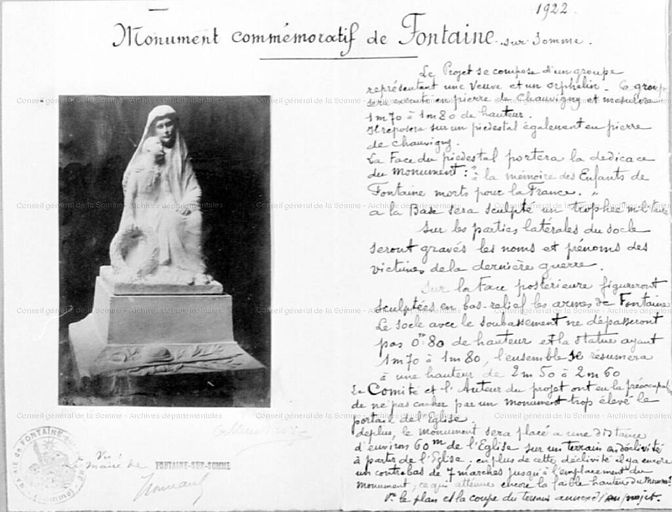 1922
Monument commémoratif de Fontaine sur Somme.
Le Projet se compose d'un groupe
représentant une Veuve et un orphelin. Ce groupe
sera exécuté en pierre de Chauvigny et mesurera
1m70 à 1m80 de hauteur.
Il reposera sur un piedestal également en pierre
de Chauvigny.
La Face du piédestal portera la dédicace
du monument : "à la mémoire des Enfants de
Fontaine morts pour la France. "
a la Base sera sculpté un trophée militaire
Sur les parties latérales du socle
seront gravés les noms et prénoms des
victimes de la dernière guerre.
Sur la Face postérieure figureront
sculptées en bas-relief les armes de Fontaine
Le socle avec le soubassement ne dépasseront
pas 0m80 de hauteur et la statue ayant
1m70 à 1m80, l'ensemble se résumera
à une hauteur de 2m50 à 2m60
Le Comité et l'Auteur du projet ont eu la préoccupation
de ne pas cacher par un monument trop élevé le
portail de l'Eglise
de plus, le monument sera placé a une distance
d'environ 60m de l'Eglise sur un terrain en déclivité
à partir de l'Eglise. en plus de cette déclivité il y a encore
un contrebas de 7 marches jusqu'à l'emplacement du
monument, ce qui attenue encore la faible hauteur du monument
Vr le plan et la coupe du terrain annexé au projet.
Vu
maire de FONTAINE-SUR-SOMME
MAIRIE DE FONTAINE
Conseil général de la Somme - Archives départementales